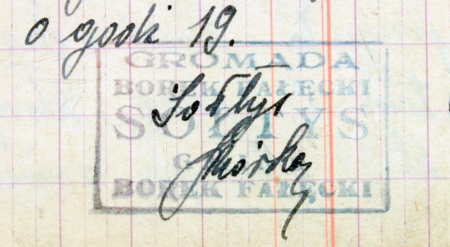 o godz 19.
GROMADA
BOREK FAŁĘCKI
Sołtys
SOŁTYS
BOREK FAŁĘCKI